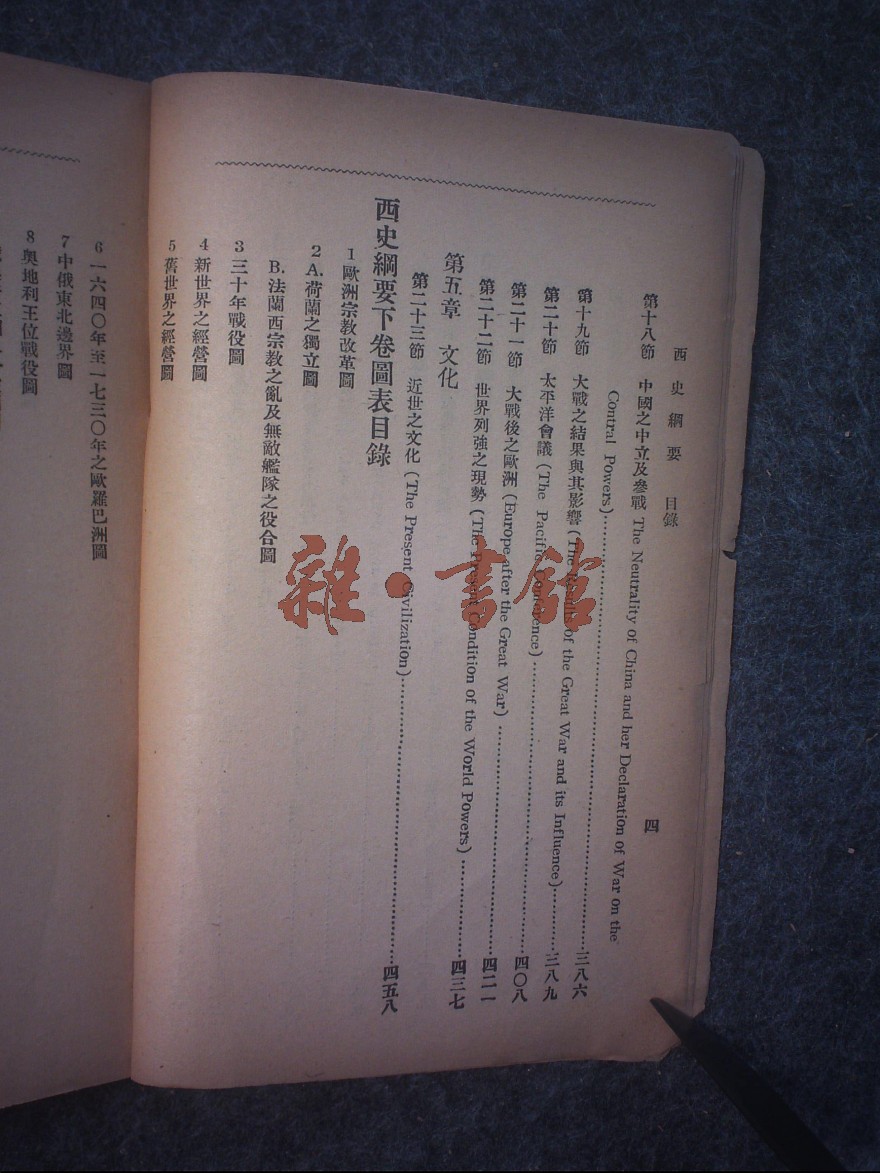 西史綱要 目錄 四
第十八節 中國之中立及參戰 The Neutrality of China and her Declaration of War on the
Contral Powers)……三八六
第十九節 大戰之結果與其影響 (The Results of the Great War and its Influence)……三八九
第二十節 太平洋會議 (The Pacific Conference)……四〇八
第二十一節 大戰後之歐洲 (Europe after the Great War)……四二一
第二十二節 世界列強之現勢 (The Present Condition of the World Powers)……四三七
第五章 文化
第二十三節 近世之文化 (The Present Civilization)……四五八
西史綱要下卷圖表目錄
1 歐洲宗教改革圖
2 A. 荷蘭之獨立圖
B. 法蘭西宗教之亂及無敵艦隊之役合圖
3 三十年戰役圖
4 新世界之經營圖
5 舊世界之經營圖
6 一六四〇年至一七三〇年之歐羅巴洲圖
7 中俄東北邊界圖
8 奧地利王位戰役圖
雜·書館